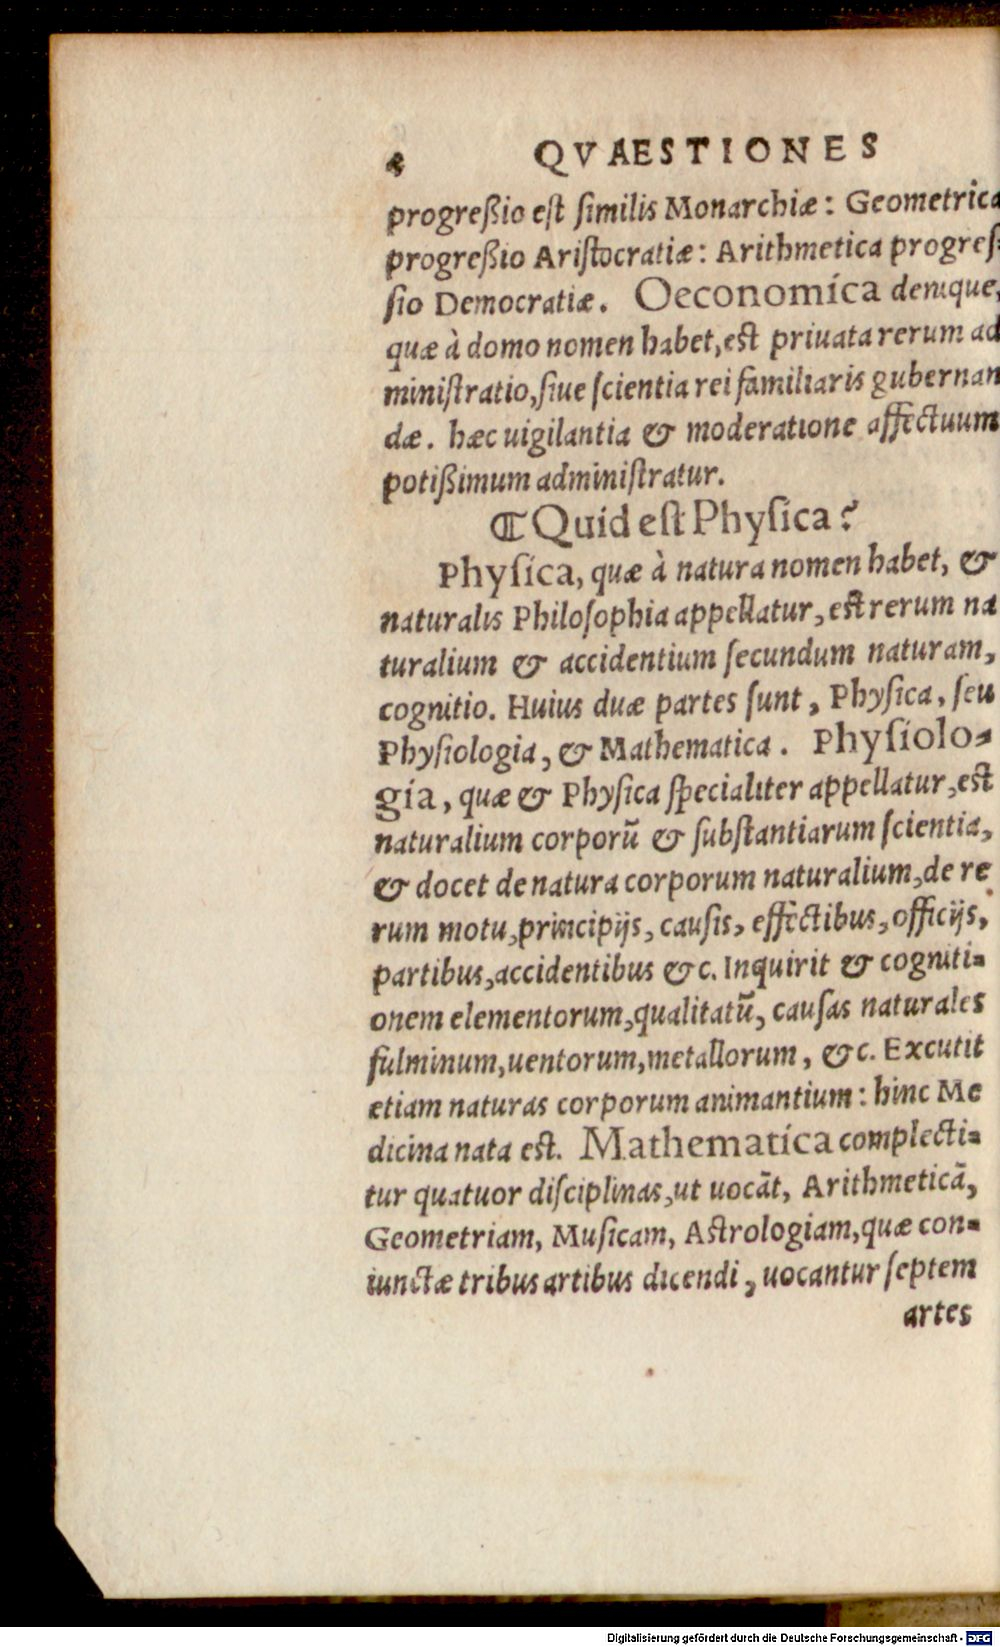 4 QVAESTIONES
progreßio est ſimilis Monarchiæ: Geometrica
progreßio Ariſtocratiæ: Arithmetica progreſ-
ſio Democratiæ. Oeconomica denique,
quæ à domo nomen habet, est priuata rerum ad
miniſtratio, ſiue ſcientia rei familiaris gubernan
dæ. hæc uigilantia & moderatione affectuum
potißimum adminiſtratur.
⁋ Quid eſt Phyſica?
Phyſica, quæ à natura nomen habet, &
naturalis Philoſophia appellatur, est rerum na
turalium & accidentium ſecundum naturam,
cognitio. Huius duæ partes ſunt, Phyſica, ſeu
Phyſiologia, & Mathematica. Phyſiolo-
gia, quæ & Phyſica ſpecialiter appellatur, est
naturalium corporū & ſubſtantiarum ſcientia,
& docet de natura corporum naturalium, de re
rum motu, principijs, cauſis, effectibus, officijs,
partibus, accidentibus &c. Inquirit & cogniti-
onem elementorum, qualitatū, cauſas naturales
fulminum, uentorum, metallorum, &c. Excutit
etiam naturas corporum animantium: hinc Me
dicina nata est. Mathematica complecti-
tur quatuor diſciplinas, ut uocāt, Arithmeticā,
Geometriam, Muſicam, Aſtrologiam, quæ con-
iunctæ tribus artibus dicendi, uocantur ſeptem
artes
Digitalisierung gefördert durch die Deutsche Forschungsgemeinschaft - DFG